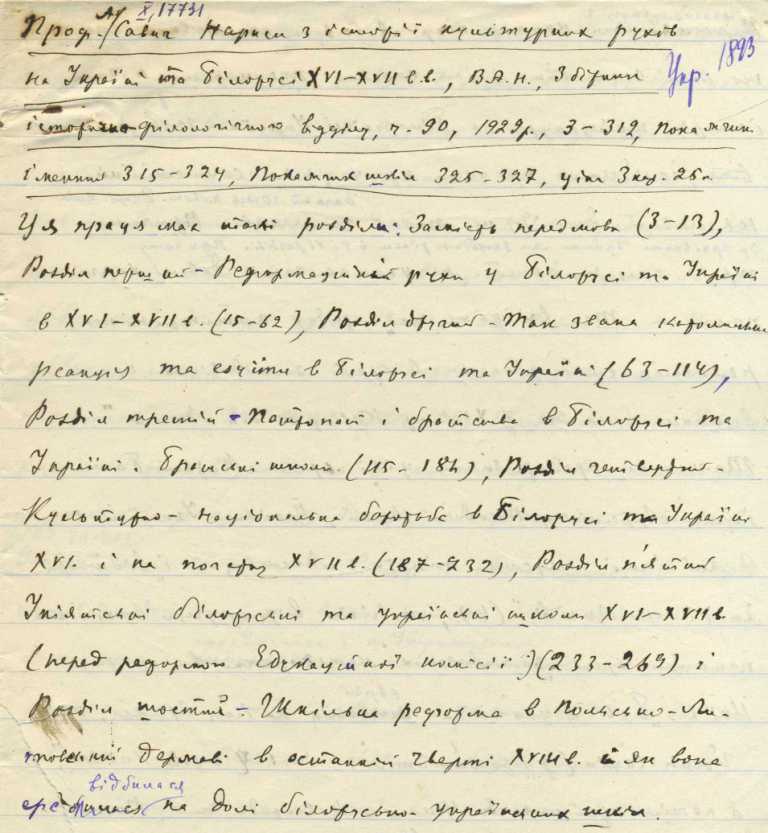 X, 17731
Проф. А. Савич Нариси з історії культурних рухів
на Україні та Білорусі XVI-XVII в.в., В.А.Н., Збірник
Укр. 1893
історично-філологічного відділу, ч. 90, 1929р., 3-312, Покажчик
іменний 315-324, Покажчик шкіл 325-327, ціна 3 кар. 25к
Ця праця має такі розділи: Замість передмови (3-13),
Розділ перший - Реформаційні рухи у Білорусі та Україні
в XVI-XVII в. (15-62), Розділ другий - Так звана католицька
реакція та єзуїти в Білорусі та Україні (63-114),
Розділ третій - Патронат і братства в Білорусі та
Україні. Братські школи (115-184), Розділ четвертий -
Культурно-національна боротьба в Білорусі та Україні
XVI. і на початку XVII в. (187-232), Розділ п'ятий
Уніятські білоруські та українські школи XVI-XVII в.
(перед реформою Едукаційної комісії) (233-269) і
Розділ шостий - Шкільна реформа в Польсько-Ли-
товській державі в останній чверті XVIII в. і як вона
відбилася
на долі білорусько-українських шкіл.